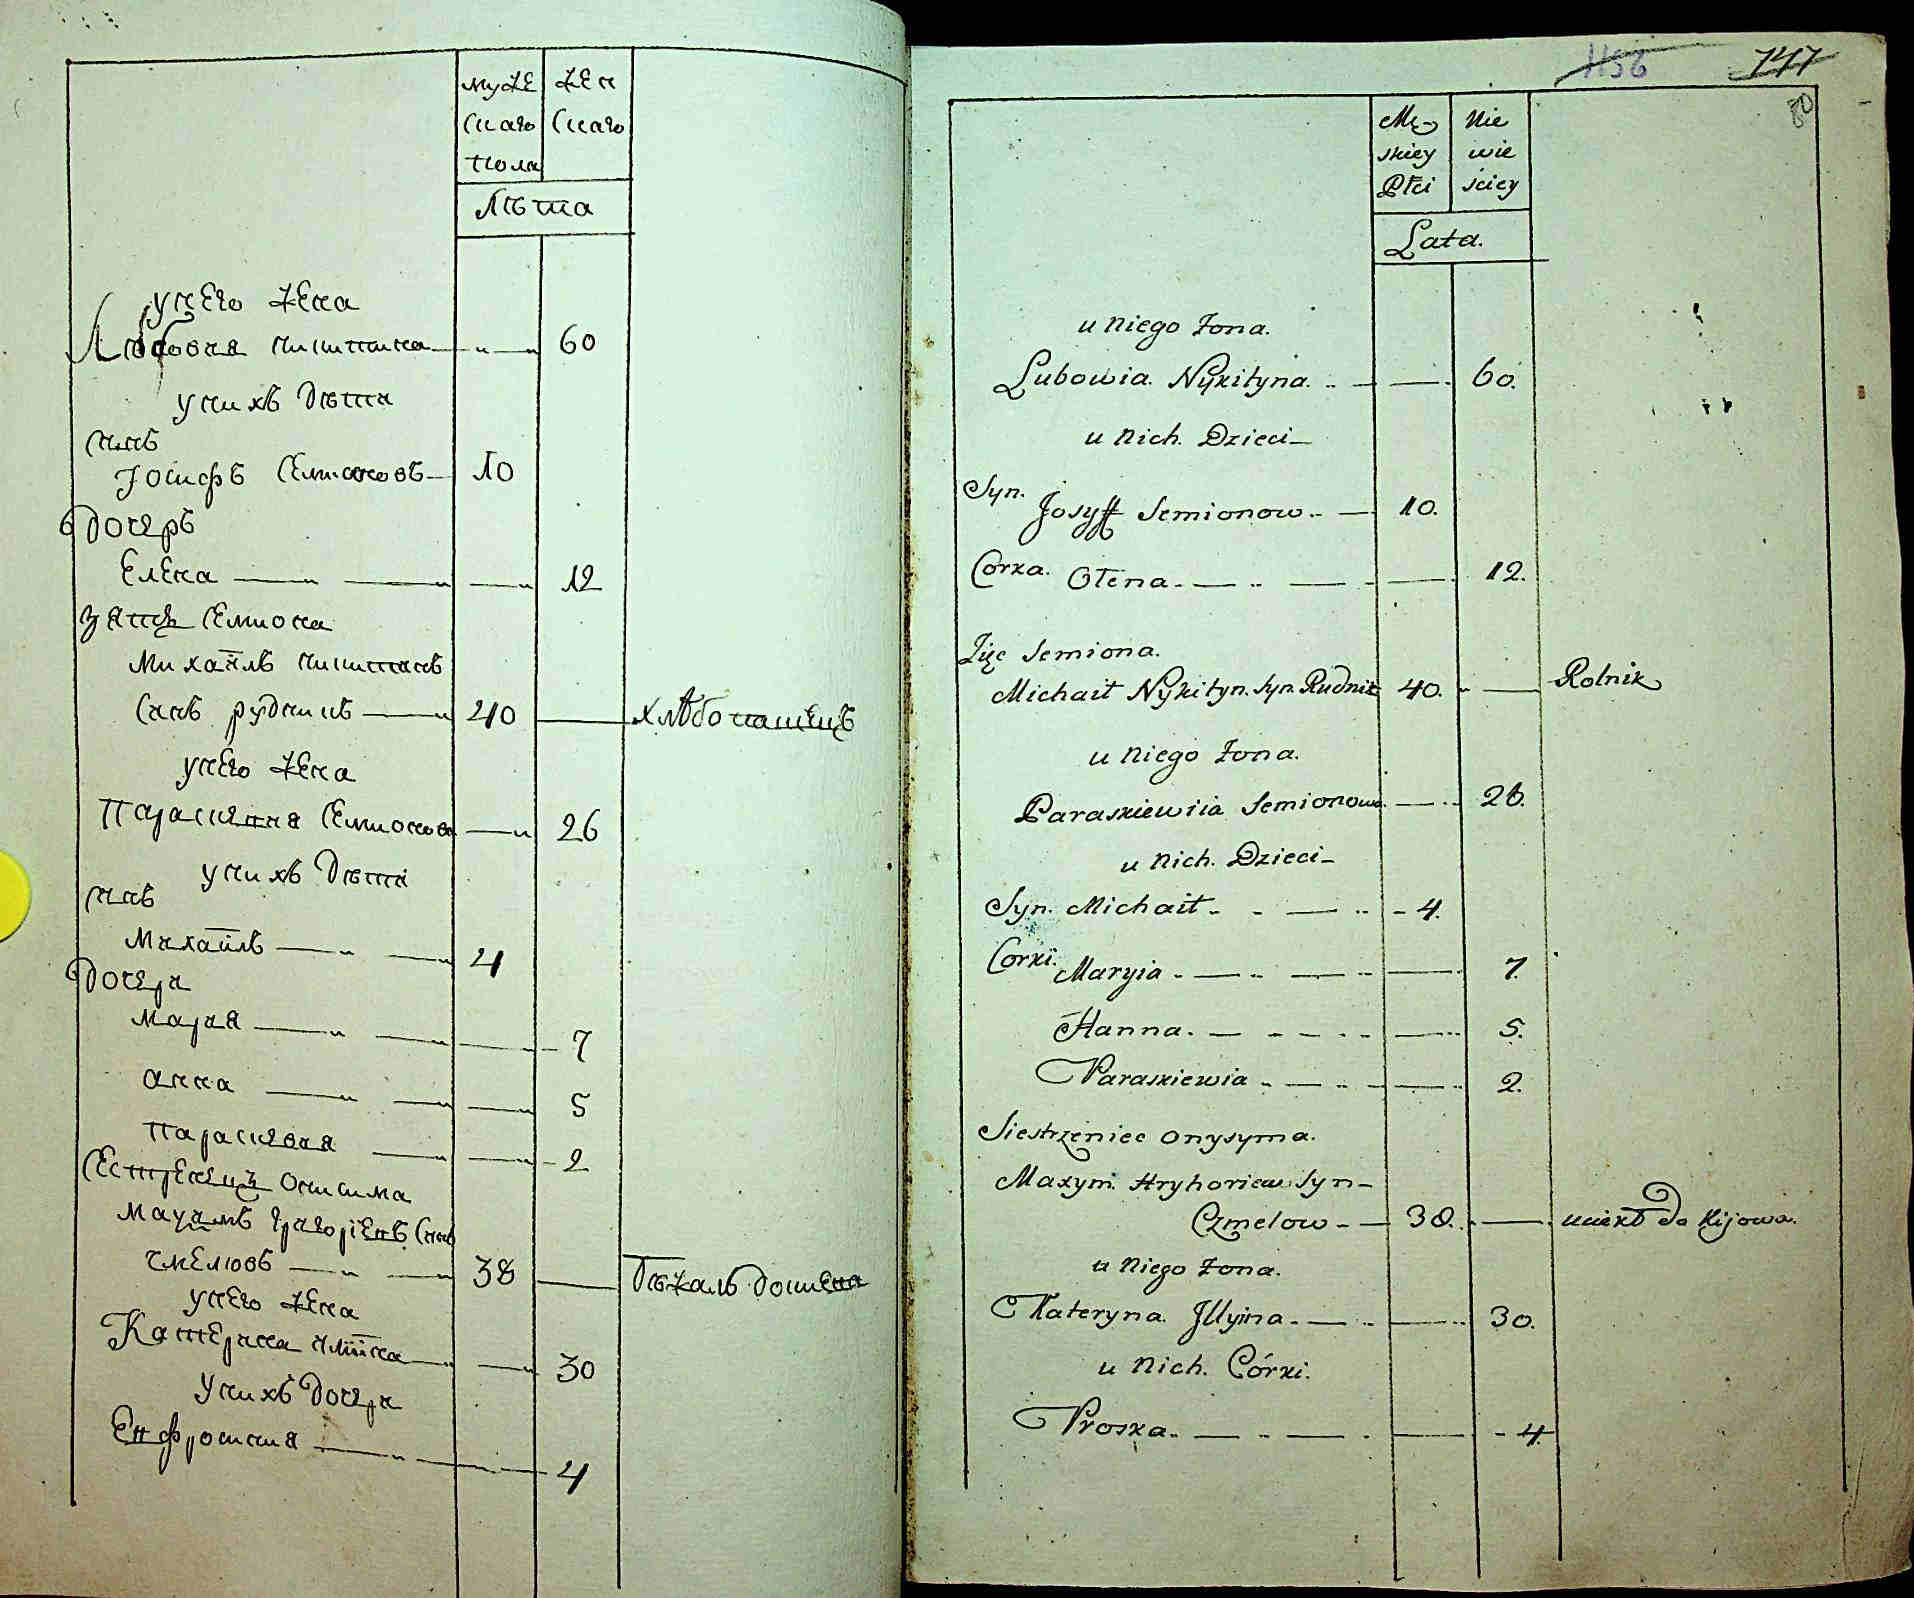 муже
скаго
пола
жен
скаго
лѣта
у него жена
Любовия никитина 60
у них дѣти
синъ
Иосифъ семионовъ 10
дочеръ
Елена 12
зять семиона
михаилъ никитинъ
синъ рудникъ 40 хлѣбопашецъ
у него жена
параскевия семионова 26
у нихъ дѣти
синъ
михаилъ 4
дочери
мария 7
анна 5
параскевия 2
сестренецъ онисима
махимъ григоріевъ синъ
чмеловъ 38 бѣжалъ до киева
у него жена
Катерина илїина 30
у нихъ дочери
Евфросиния 4
1156 747
80
Mę-
skiey
Płci
Nie
wie
ściey
Lata.
u niego Żona.
Lubowia. Nykityna. 60.
u nich. Dzieci
Syn.
Josyff Semionow. 10.
Corka. Ołena. 12.
Zięć Semiona.
Michaił Nykityn. Syn. Rudnik 40. Rolnik
u niego Żona.
Paraskiewiia Semionowa. 26.
u nich. Dzieci
Syn. Michaił 4.
Corki. Maryia 7.
Hanna. 5.
Paraskiewia 2.
Siestrzeniec Onysyma.
Maxym. Hryhoriew Syn
Czmelow 38. uciekł do Kijowa.
u niego Żona.
Kateryna. Illyina. 30.
u nich. Córki.
Proska. 4.